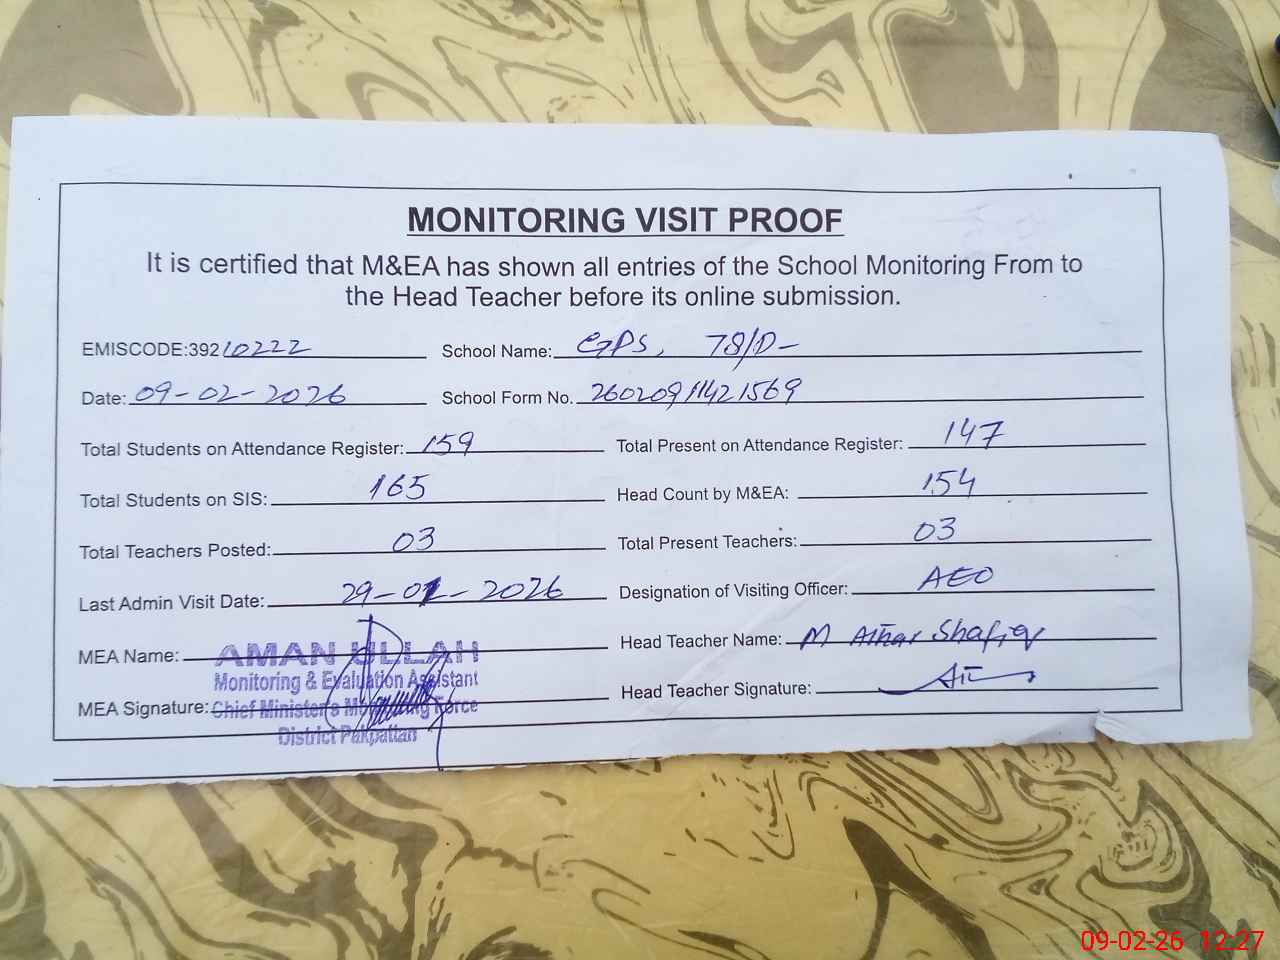 MONITORING VISIT PROOF
It is certified that M&EA has shown all entries of the School Monitoring From to
the Head Teacher before its online submission.
EMISCODE:39210222 School Name: GPS, 78/D-
Date: 09-02-2026 School Form No. 26020911421569
Total Students on Attendance Register: 159 Total Present on Attendance Register: 147
Total Students on SIS: 165 Head Count by M&EA: 154
Total Teachers Posted: 03 Total Present Teachers: 03
Last Admin Visit Date: 29-01-2026 Designation of Visiting Officer: AEO
MEA Name: AMAN ULLAH Head Teacher Name: M Athar Shafiq
Monitoring & Evaluation Assistant
MEA Signature: Chief Minister's Monitoring Force Head Teacher Signature:
District Pakpattan
09-02-26 12:27